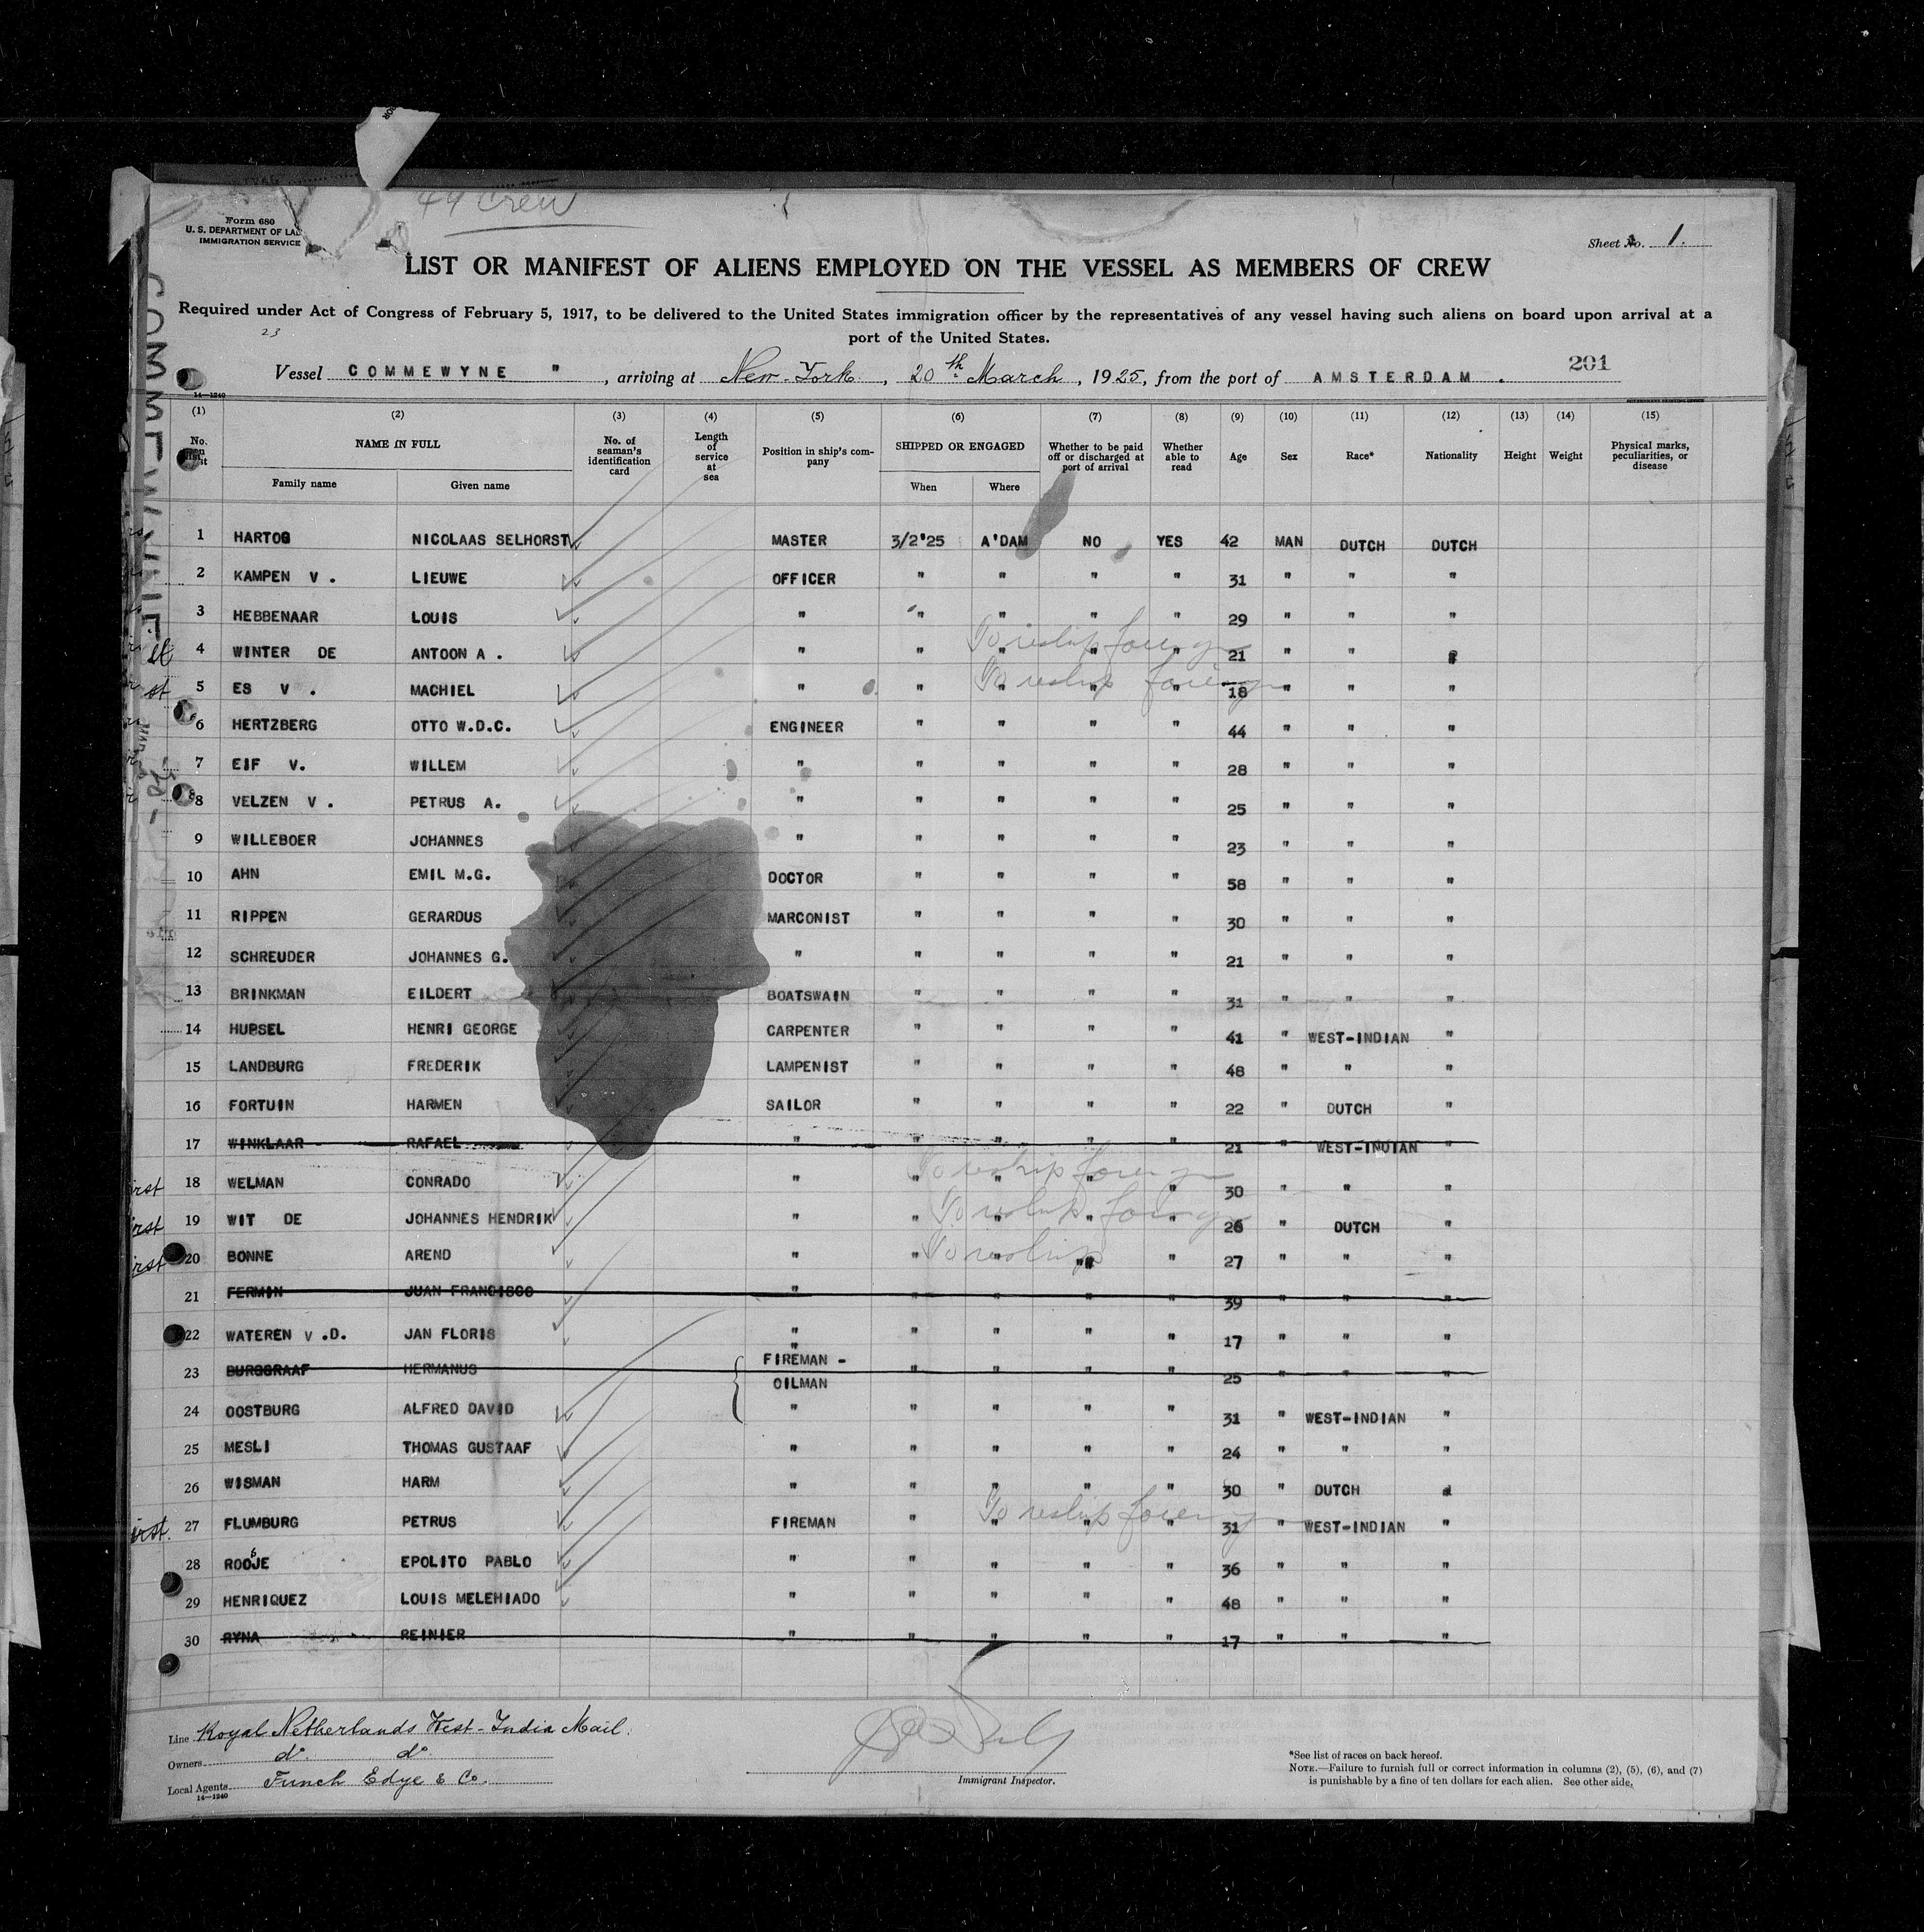 44 Crew
Form 680
U. S. DEPARTMENT OF LA
IMMIGRATION SERVICE
Sheet No. 1.
LIST OR MANIFEST OF ALIENS EMPLOYED ON THE VESSEL AS MEMBERS OF CREW
Required under Act of Congress of February 5, 1917, to be delivered to the United States immigration officer by the representatives of any vessel having such aliens on board upon arrival at a
port of the United States.
23
Vessel COMMEWYNE " , arriving at New-York. , 20th March , 1925, from the port of AMSTERDAM . 201
14—1240
(1) (2) (3) (4) (5) (6) (7) (8) (9) (10) (11) (12) (13) (14) (15)
No. on list NAME IN FULL No. of seaman's identification card Length of service at sea Position in ship's company SHIPPED OR ENGAGED Whether to be paid off or discharged at port of arrival Whether able to read Age Sex Race* Nationality Height Weight Physical marks, peculiarities, or disease
Family name Given name When Where
1 HARTOG NICOLAAS SELHORST MASTER 3/2'25 A'DAM NO YES 42 MAN DUTCH DUTCH
2 KAMPEN V . LIEUWE OFFICER " " " " 31 " " "
3 HEBBENAAR LOUIS " " " " " 29 " " "
To reship foreign
st 4 WINTER DE ANTOON A . " " " " " 21 " " "
To reship foreign
st 5 ES V . MACHIEL " " " " " 18 " " "
6 HERTZBERG OTTO W.D.C. ENGINEER " " " " 44 " " "
7 EIF V. WILLEM " " " " " 28 " " "
8 VELZEN V . PETRUS A. " " " " " 25 " " "
9 WILLEBOER JOHANNES " " " " " 23 " " "
10 AHN EMIL M.G. DOCTOR " " " " 58 " " "
11 RIPPEN GERARDUS MARCONIST " " " " 30 " " "
12 SCHREUDER JOHANNES G. " " " " " 21 " " "
13 BRINKMAN EILDERT BOATSWAIN " " " " 31 " " "
14 HUPSEL HENRI GEORGE CARPENTER " " " " 41 " WEST-INDIAN "
15 LANDBURG FREDERIK LAMPENIST " " " " 48 " " "
16 FORTUIN HARMEN SAILOR " " " " 22 " DUTCH "
17 WINKLAAR RAFAEL " " " " " 21 " WEST-INDIAN "
To reship foreign
irst 18 WELMAN CONRADO " " " " " 30 " " "
To reship foreign
irst 19 WIT DE JOHANNES HENDRIK " " " " " 26 " DUTCH "
To reship
irst 20 BONNE AREND " " " " " 27 " " "
21 FERMIN JUAN FRANCISCO " " " " " 39 " " "
22 WATEREN V .D. JAN FLORIS " " " " " 17 " " "
"
FIREMAN -
23 BURGGRAAF HERMANUS " " " " 25 " " "
OILMAN
24 OOSTBURG ALFRED DAVID " " " " " 31 " WEST-INDIAN "
25 MESLI THOMAS GUSTAAF " " " " " 24 " " "
26 WISMAN HARM " " " " " 30 " DUTCH "
To reship foreign
irst. 27 FLUMBURG PETRUS FIREMAN " " " " 31 " WEST-INDIAN "
28 ROOSJE EPOLITO PABLO " " " " " 36 " " "
29 HENRIQUEZ LOUIS MELEHIADO " " " " " 48 " " "
30 RYNA REINIER " " " " " 17 " " "
Line Royal Netherlands West-India Mail.
Owners do. do.
Local Agents Funch Edye & Co.
14—1240
Immigrant Inspector.
*See list of races on back hereof.
NOTE.—Failure to furnish full or correct information in columns (2), (5), (6), and (7)
is punishable by a fine of ten dollars for each alien. See other side.